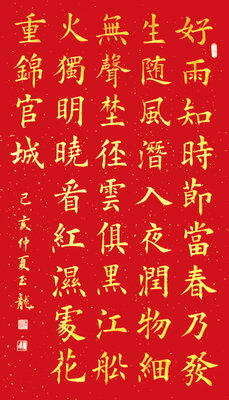 好雨知時節當春乃發
生随風潛入夜潤物細
無聲埜径雲俱黑江舩
火獨明曉看紅濕處花
重錦官城
己亥仲夏玉龍